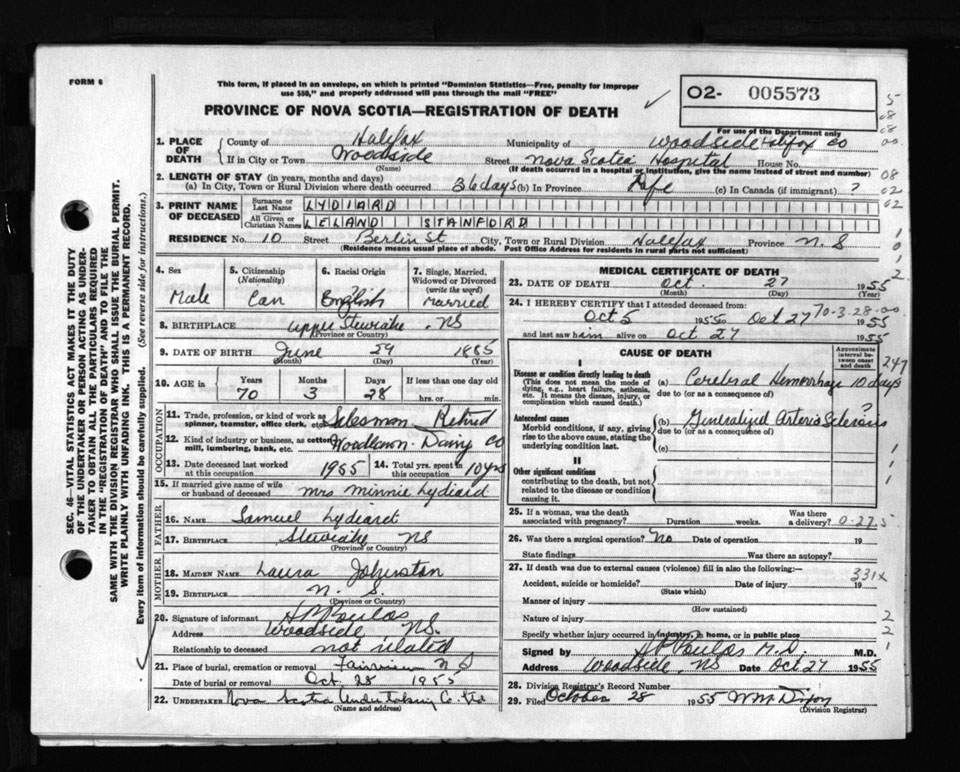 FORM 6
This form, if placed in an envelope, on which is printed "Dominion Statistics—Free, penalty for improper
use $50," and properly addressed will pass through the mail "FREE"
PROVINCE OF NOVA SCOTIA—REGISTRATION OF DEATH
02- 005573
For use of the Department only
1. PLACE OF DEATH
County of Halifax Municipality of Woodside Halifax Co
If in City or Town Woodside Street Nova Scotia Hospital House No.
(Name) (If death occurred in a hospital or institution, give the name instead of street and number)
2. LENGTH OF STAY (in years, months and days)
(a) In City, Town or Rural Division where death occurred 36 days (b) In Province Life (c) In Canada (if immigrant) ?
3. PRINT NAME OF DECEASED
Surname or Last Name LYDIARD
All Given or Christian Names LELAND STANFORD
RESIDENCE No. 10 Street Berlin St City, Town or Rural Division Halifax Province N.S
(Residence means usual place of abode. Post Office Address for residents in rural parts not sufficient)
4. Sex Male
5. Citizenship (Nationality) Can
6. Racial Origin English
7. Single, Married, Widowed or Divorced (write the word) Married
8. BIRTHPLACE Upper Stewiake NS
9. DATE OF BIRTH June 29 1885
(Month) (Day) (Year)
10. AGE in Years Months Days If less than one day old
70 3 28 hrs. or min.
OCCUPATION
11. Trade, profession or kind of work as spinner, teamster, office clerk, etc. Salesman Retired
12. Kind of industry or business, as cotton mill, lumbering, bank, etc. Woodlawn Dairy Co
13. Date deceased last worked at this occupation 1955
14. Total yrs. spent in this occupation 10 yrs
15. If married give name of wife or husband of deceased Mrs Minnie Lydiard
FATHER
16. NAME Samuel Lydiard
17. BIRTHPLACE Stewiake NS
(Province or Country)
MOTHER
18. MAIDEN NAME Laura Johnston
19. BIRTHPLACE N. S.
(Province or Country)
20. Signature of informant H P Poulos
Address Woodside, NS.
Relationship to deceased not related
21. Place of burial, cremation or removal Fairview N S
Date of burial or removal Oct. 28 1955
22. UNDERTAKER Nova Scotia Undertaking Co. Ltd
(Name and address)
MEDICAL CERTIFICATE OF DEATH
23. DATE OF DEATH Oct. 27 1955
(Month) (Day) (Year)
24. I HEREBY CERTIFY that I attended deceased from:
70-3-28-00
Oct 5 1955 to Oct 27 1955
and last saw him alive on Oct 27 1955
CAUSE OF DEATH
Approximate interval between onset and death
247
I
Disease or condition directly leading to death
(This does not mean the mode of dying, e.g., heart failure, asthenia, etc. It means the disease, injury, or complication which caused death.)
(a) Cerebral Hemorrhage 10 days
due to (or as a consequence of)
Antecedent causes
Morbid conditions, if any, giving rise to the above cause, stating the underlying condition last.
(b) Generalized Arterio Sclerosis ?
due to (or as a consequence of)
(c)
II
Other significant conditions
contributing to the death, but not related to the disease or condition causing it.
25. If a woman, was the death associated with pregnancy? Duration weeks. Was there a delivery? 0-27-5
26. Was there a surgical operation? No Date of operation 19
State findings Was there an autopsy?
27. If death was due to external causes (violence) fill in also the following:—
331x
Accident, suicide or homicide? Date of injury 19
(State which)
Manner of injury
(How sustained)
Nature of injury
Specify whether injury occurred in industry, in home, or in public place
Signed by H P Poulos M.D. M.D.
Address Woodside, NS Date Oct 27 1955
28. Division Registrar's Record Number
29. Filed October 28 1955 W M Dixon
(Division Registrar)
SEC. 46—VITAL STATISTICS ACT MAKES IT THE DUTY
OF THE UNDERTAKER OR PERSON ACTING AS UNDERTAKER
TO OBTAIN ALL THE PARTICULARS REQUIRED
IN THE "REGISTRATION OF DEATH" AND TO FILE THE
SAME WITH THE DIVISION REGISTRAR WHO SHALL ISSUE THE BURIAL PERMIT.
WRITE PLAINLY WITH UNFADING INK. THIS IS A PERMANENT RECORD.
Every item of information should be carefully supplied. (See reverse side for instructions.)